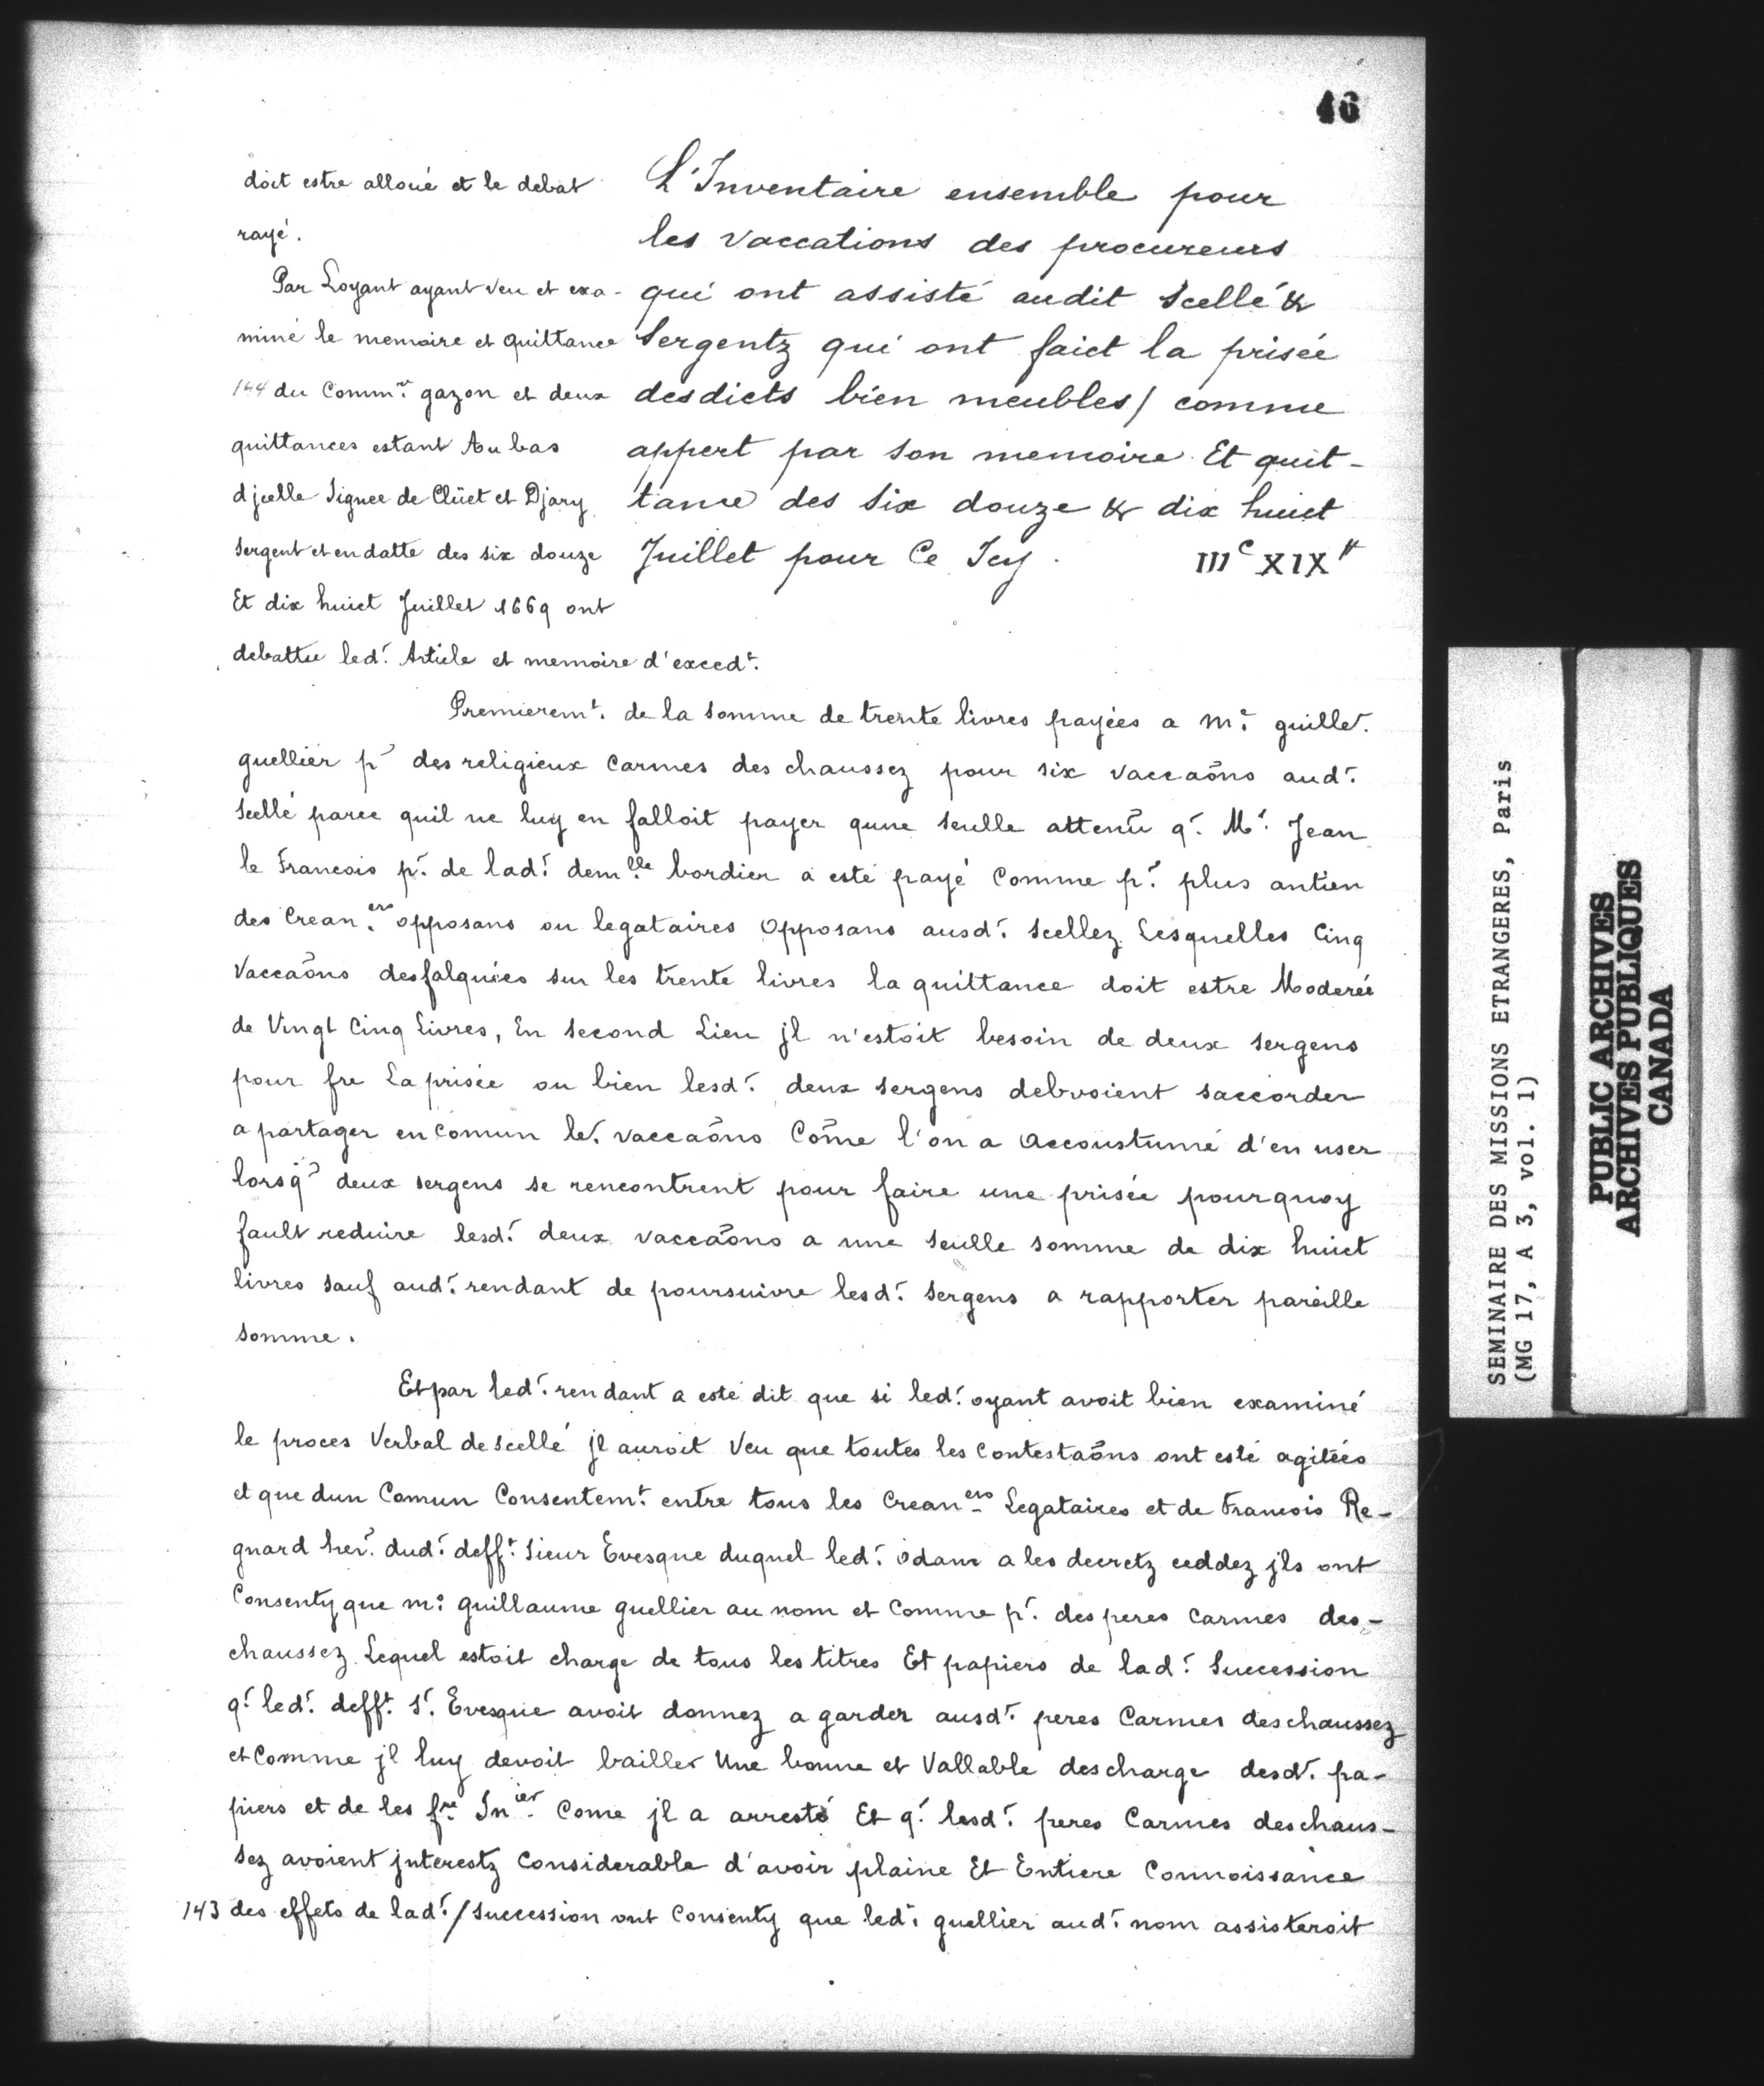 46
doit estre alloüé et le debat
rayé.
Par Loyant ayant veu et exa-
miné le memoire et quittance
144 du Comm.re gazon et deux
quittances estant Au bas
djcelle Signee de Clüet et Djary
Sergent et en datte des six douze
Et dix huict Juillet 1669 ont
debattu led.t Article et memoire d'exced.t
L'Inventaire ensemble pour
les vaccations des procureurs
qui ont assisté audit Scellé &
Sergentz qui ont faict la prisée
desdicts bien meubles / comme
appert par son memoire Et quit-
tance des Six douze & dix huict
Juillet pour Ce Icy. IIIc XIX lt
Premierem.t de la Somme de trente livres payées a M.e guille.
guellier p.r des religieux Carmes des chaussez pour six vaccaõns aud.t
Scellé parce quil ne luy en falloit payer qune Seulle attenũ q.e M.e Jean
le Francois p.r de lad.t dem.lle bordier a esté payé Comme p.r plus antien
des Crean.ers opposans ou legataires Opposans ausd.t Scellez Lesquelles Cinq
Vaccaõns desfalquées sur les trente livres la quittance doit estre Moderée
de Vingt Cinq Livres, En Second Lieu jl n'estoit besoin de deux sergens
pour fre La prisée ou bien lesd.t deux sergens debvoient saccorder
a partager en comun le. vaccaõns Cõme l'on a accoustumé d'en user
lorsq.e deux sergens se rencontrent pour faire une prisée pourquoy
fault reduire lesd.t deux vaccaõns a une Seulle somme de dix huict
livres Sauf aud.t rendant de poursuivre lesd.t Sergens a rapporter pareille
Somme.
Et par led.t rendant a esté dit que si led.t oyant avoit bien examiné
le proces Verbal de Scellé jl auroit Veu que toutes les Contestaõns ont esté agitées
et que dun Comun Consentem.t entre tous les Crean.ers Legataires et de Francois Re-
gnard her.r dud.t deff.t Sieur Evesque duquel led.t odam a les decretz ceddez jls ont
Consenty que m.e guillaume guellier au nom et Comme p.r des peres Carmes des-
chaussez Lequel estoit charge de tous les titres Et papiers de lad.t Succession
q.e led.t deff.t S.r Evesque avoit donnez a garder ausd.t peres Carmes deschaussez
et Comme jl luy devoit bailler Une bonne et Vallable descharge desd.t pa-
piers et de les f.re In.ier Come jl a arresté Et q.e lesd.t peres Carmes deschaus-
sez avoient jnterestz Considerable d'avoir plaine Et Entiere Connoissance
143 des effets de lad.t / Succession ont Consenty que led.t guellier aud.t nom assisteroit
SEMINAIRE DES MISSIONS ETRANGERES, Paris
(MG 17, A 3, vol. 1)
PUBLIC ARCHIVES
ARCHIVES PUBLIQUES
CANADA